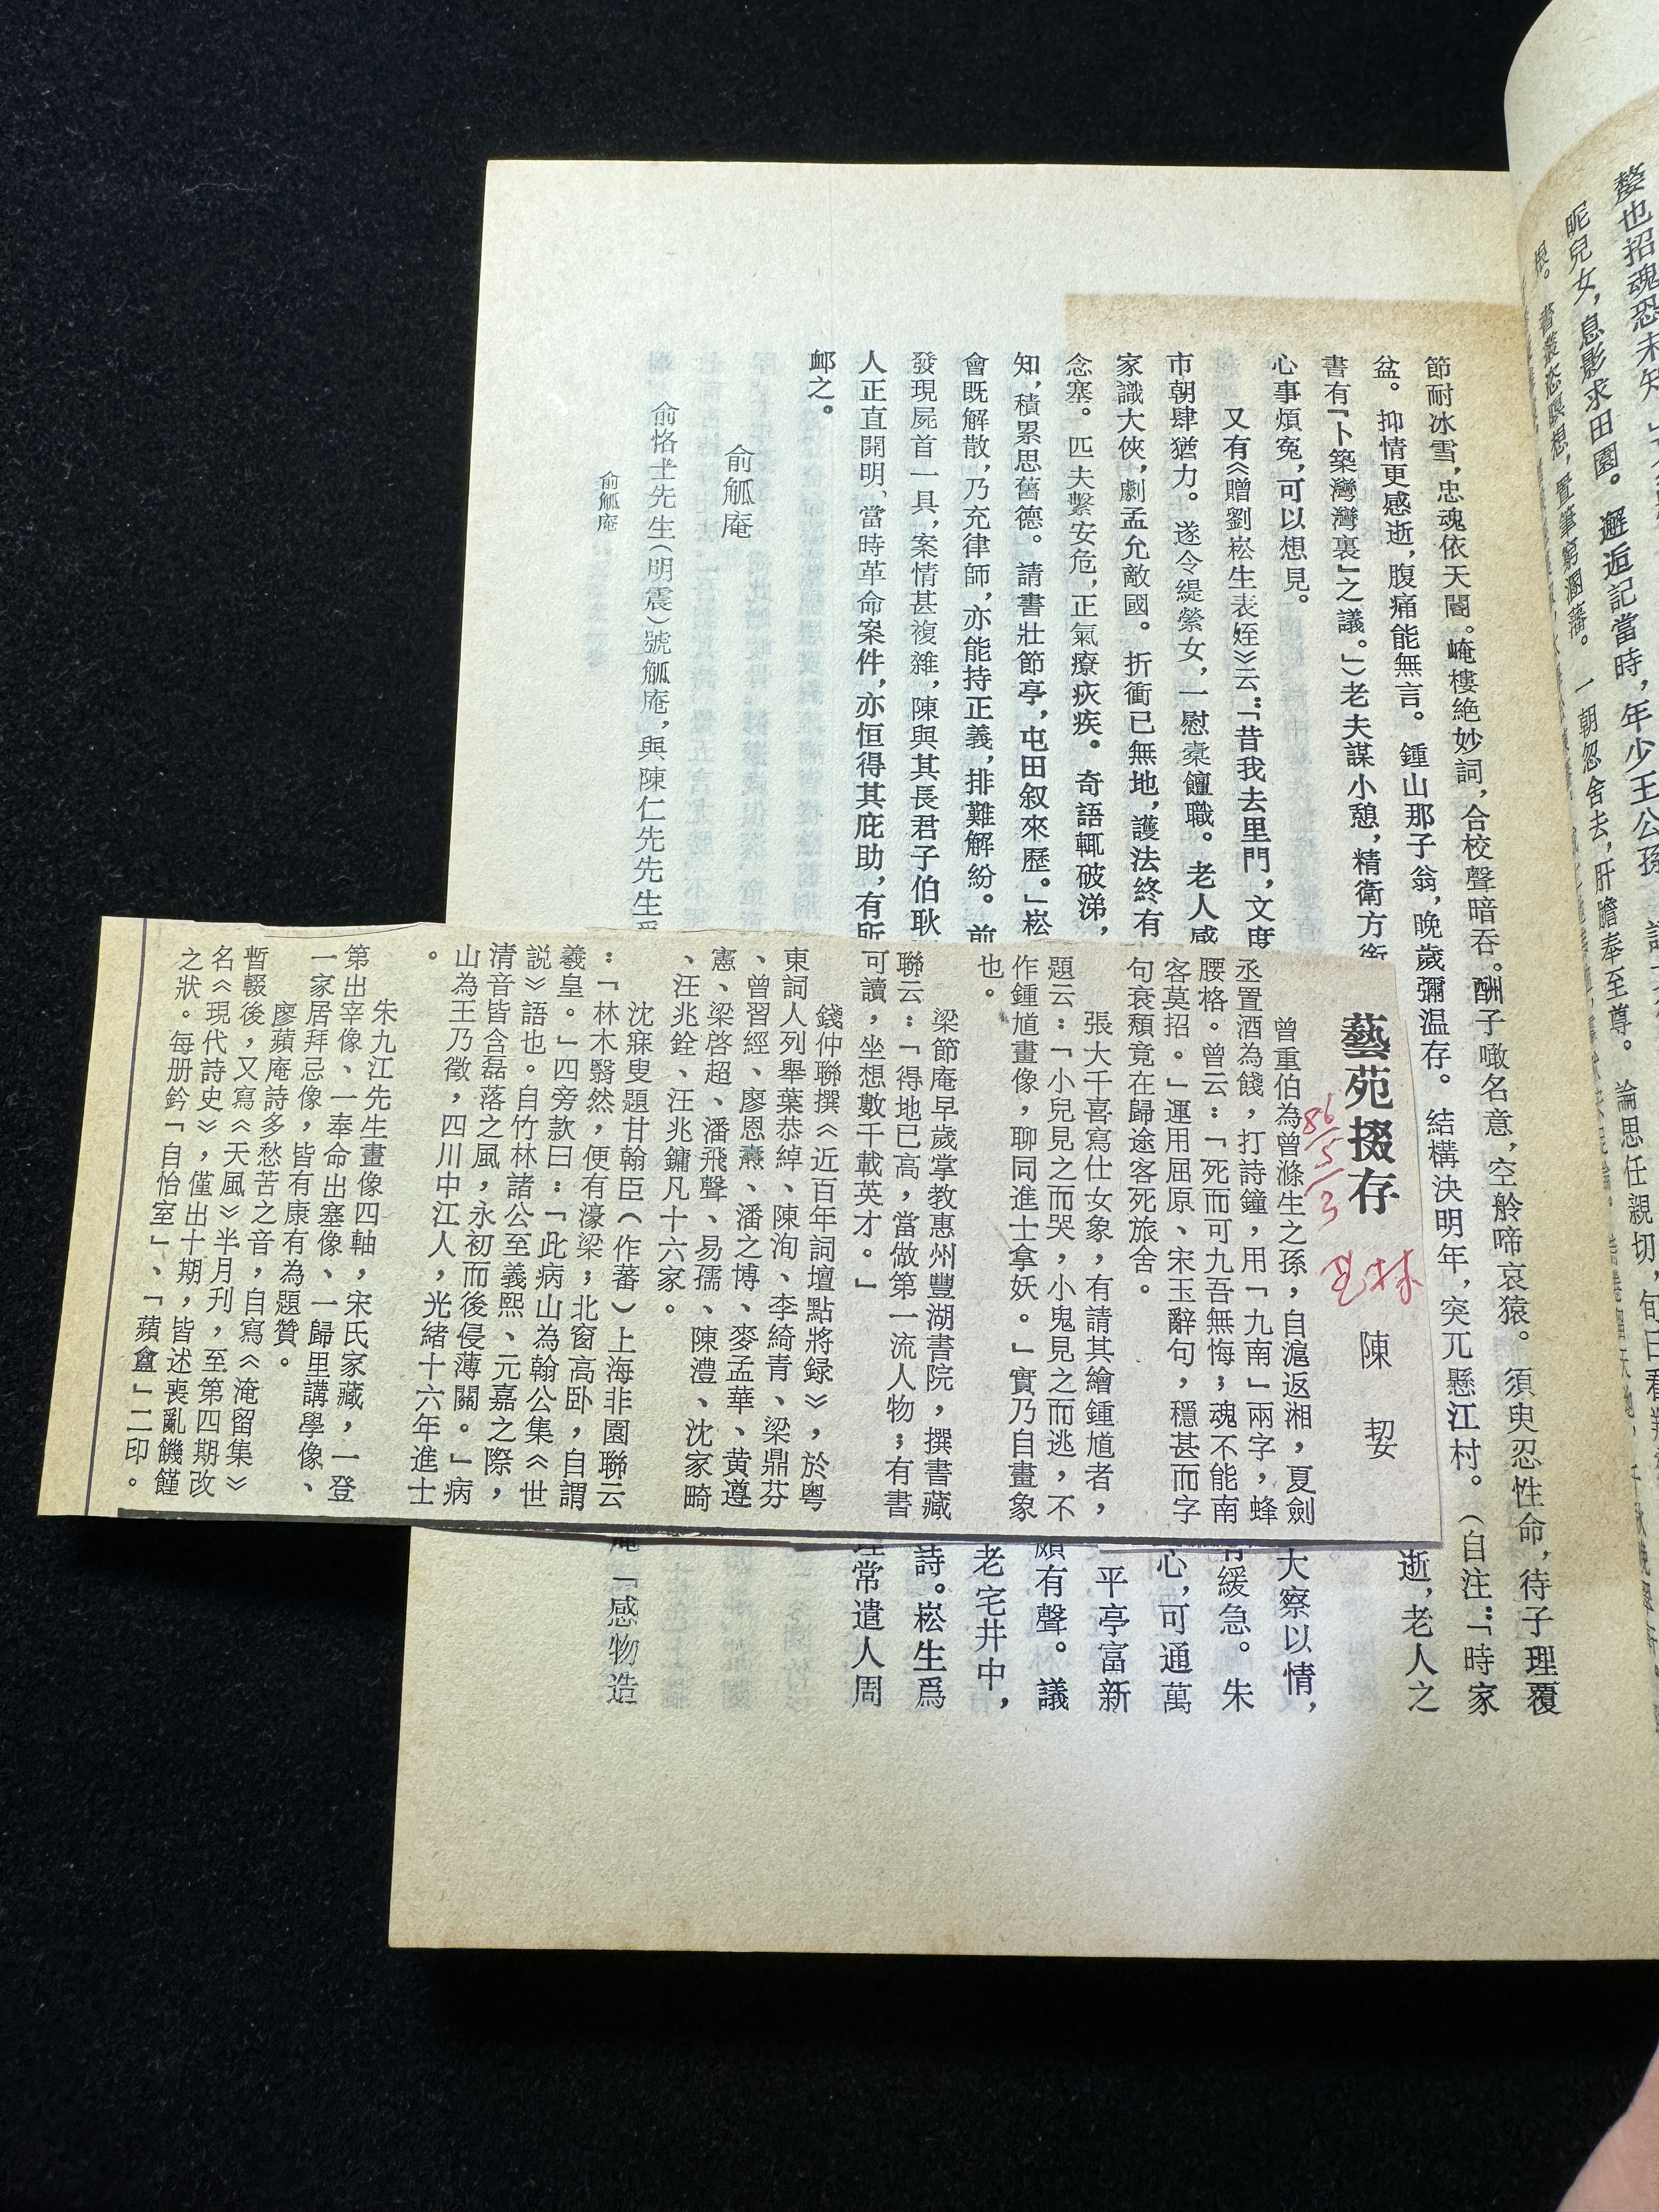 嫠也招魂恐未知
昵兒女，息影求田園。邂逅記當時，年少王公孫
一朝忽舍去，肝膽奉至尊。論思任親切，旬日
節耐冰雪，忠魂依天閽。崦樓絶妙詞，合校聲暗吞。酬子噉名意，空舲啼哀猿。須臾忍性命，待子理覆
盆。抑情更感逝，腹痛能無言。鍾山那子翁，晚歲彌温存。結構決明年，突兀懸江村。（自注：「時家
書有『卜築灣灣裏』之議。」）老夫謀小憩，精衛方銜
逝，老人之
心事煩寃，可以想見。
又有《贈劉崧生表姪》云：「昔我去里門，文度
大察以情，
市朝肆猶力。遂令緹縈女，一慰槖饘職。老人感
有緩急。朱
家識大俠，劇孟允敵國。折衝已無地，護法終有
心，可通萬
念塞。匹夫繫安危，正氣療疢疾。奇語輒破涕，
平亭富新
知，積累思舊德。請書壯節亭，屯田叙來歷。」崧
頗有聲。議
會既解散，乃充律師，亦能持正義，排難解紛。前
老宅井中，
發現屍首一具，案情甚複雜，陳與其長君子伯耿
詩。崧生爲
人正直開明，當時革命案件，亦恒得其庇助，有所
理常遣人周
邺之。
俞觚庵
俞恪士先生（明震）號觚庵，與陳仁先先生爲
庵「感物造
俞觚庵
藝苑掇存
86/5/3
艺林
陳契
曾重伯為曾滌生之孫，自滬返湘，夏劍
丞置酒為餞，打詩鐘，用「九南」兩字，蜂
腰格。曾云：「死而可九吾無悔；魂不能南
客莫招。」運用屈原、宋玉辭句，穩甚而字
句衰頹竟在歸途客死旅舍。
張大千喜寫仕女象，有請其繪鍾馗者，
題云：「小兒見之而哭，小鬼見之而逃，不
作鍾馗畫像，聊同進士拿妖。」實乃自畫象
也。
梁節庵早歲掌教惠州豐湖書院，撰書藏
聯云：「得地已高，當做第一流人物；有書
可讀，坐想數千載英才。」
錢仲聯撰《近百年詞壇點將録》，於粵
東詞人列舉葉恭綽、陳洵、李綺青、梁鼎芬
、曾習經、廖恩燾、潘之博、麥孟華、黃遵
憲、梁啓超、潘飛聲、易孺、陳澧、沈家畸
、汪兆銓、汪兆鏞凡十六家。
沈寐叟題甘翰臣（作蕃）上海非園聯云
：「林木翳然，便有濠梁；北窗高卧，自謂
羲皇。」四旁款曰：「此病山為翰公集《世
説》語也。自竹林諸公至義熙、元嘉之際，
清音皆含磊落之風，永初而後侵薄關。」病
山為王乃徵，四川中江人，光緒十六年進士
。
朱九江先生畫像四軸，宋氏家藏，一登
第出宰像、一奉命出塞像、一歸里講學像、
一家居拜忌像，皆有康有為題贊。
廖蘋庵詩多愁苦之音，自寫《淹留集》
暫輟後，又寫《天風》半月刊，至第四期改
名《現代詩史》，僅出十期，皆述喪亂饑饉
之狀。每册鈐「自怡室」、「蘋盦」二印。